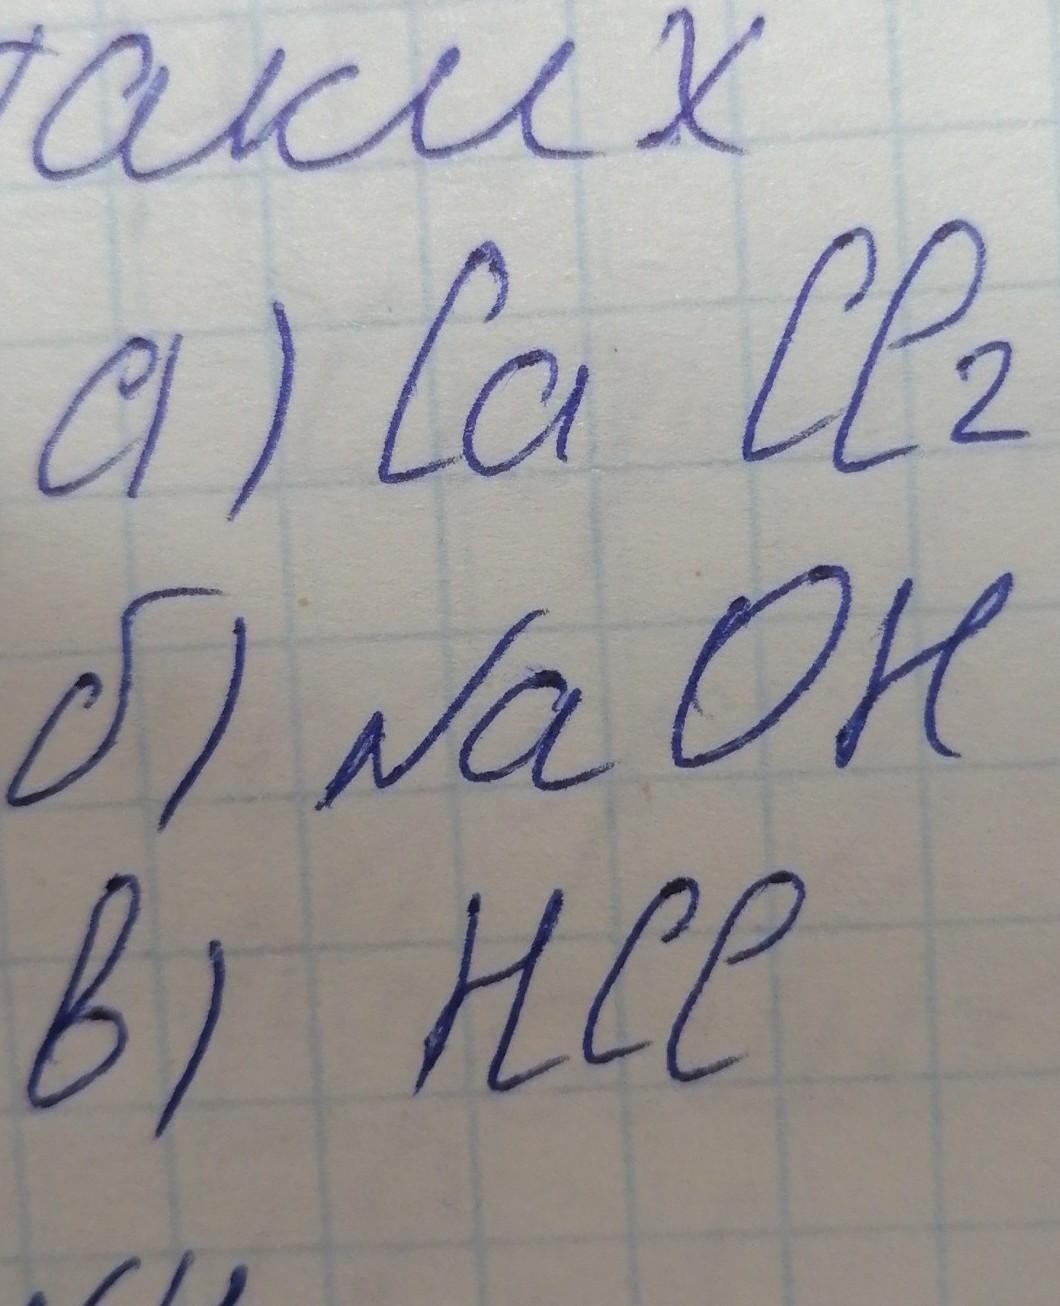 таких
а) CaCl₂
б) NaOH
в) HCl